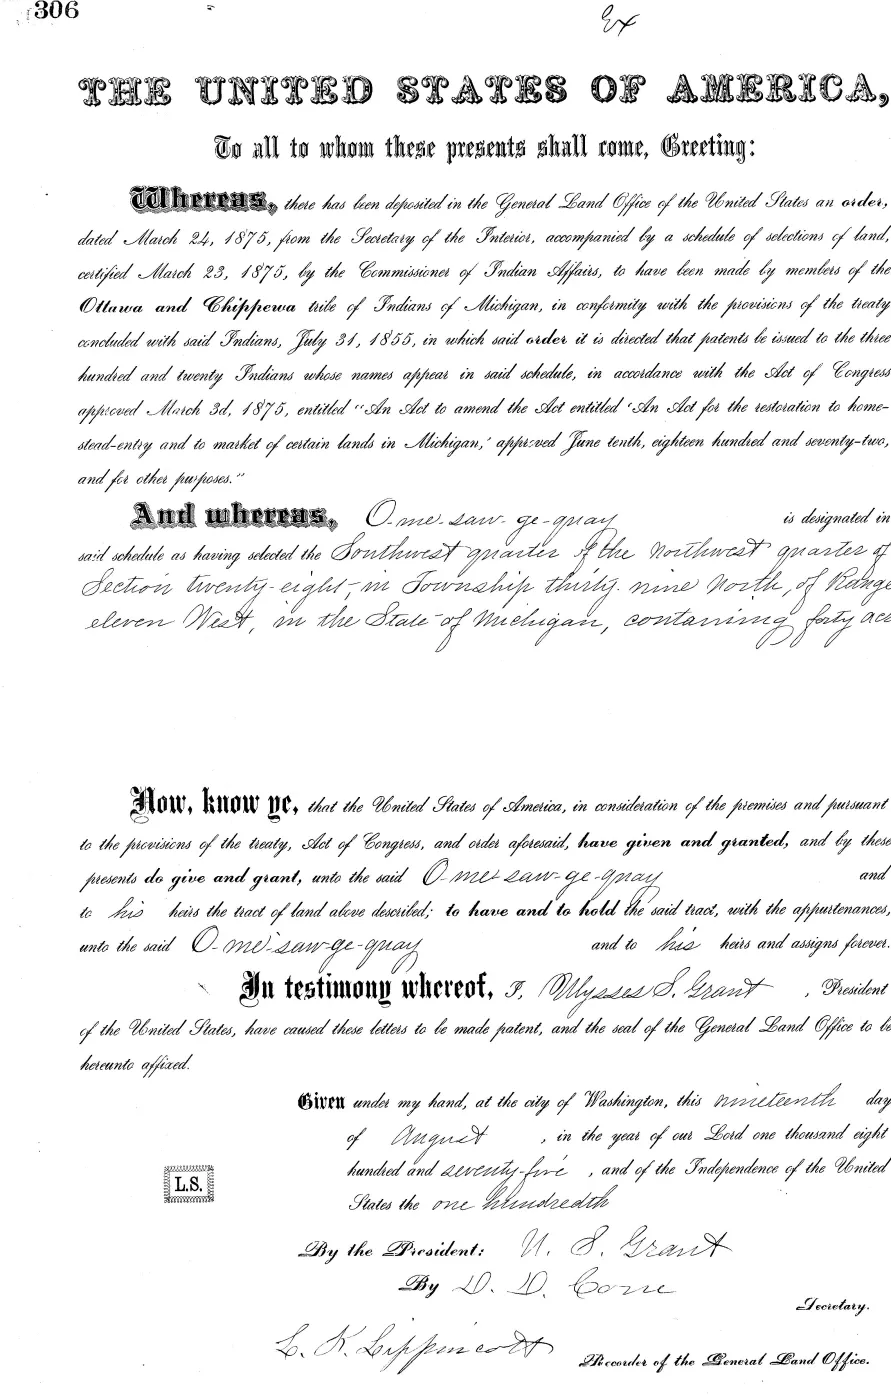 306
Ex
THE UNITED STATES OF AMERICA,
To all to whom these presents shall come, Greeting:
Whereas, there has been deposited in the General Land Office of the United States an order,
dated March 24, 1875, from the Secretary of the Interior, accompanied by a schedule of selections of land,
certified March 23, 1875, by the Commissioner of Indian Affairs, to have been made by members of the
Ottawa and Chippewa tribe of Indians of Michigan, in conformity with the provisions of the treaty
concluded with said Indians, July 31, 1855, in which said order it is directed that patents be issued to the three
hundred and twenty Indians whose names appear in said schedule, in accordance with the Act of Congress
approved March 3d, 1875, entitled "An Act to amend the Act entitled 'An Act for the restoration to home-
stead-entry and to market of certain lands in Michigan,' approved June tenth, eighteen hundred and seventy-two,
and for other purposes."
And whereas, O-me-saw-ge-quay is designated in
said schedule as having selected the Southwest quarter of the Northwest quarter of
Section twenty-eight, in Township thirty-nine North, of Range
eleven West, in the State of Michigan, containing forty ac
Now, know ye, that the United States of America, in consideration of the premises and pursuant
to the provisions of the treaty, Act of Congress, and order aforesaid, have given and granted, and by these
presents do give and grant, unto the said O-me-saw-ge-quay and
to his heirs the tract of land above described; to have and to hold the said tract, with the appurtenances,
unto the said O-me-saw-ge-quay and to his heirs and assigns forever.
In testimony whereof, I, Ulysses S. Grant, President
of the United States, have caused these letters to be made patent, and the seal of the General Land Office to be
hereunto affixed.
Given under my hand, at the city of Washington, this nineteenth day
of August, in the year of our Lord one thousand eight
hundred and seventy-five, and of the Independence of the United
L.S.
States the one hundredth
By the President: U. S. Grant
By D. D. Cone
Secretary.
L. K. Lippincott
Recorder of the General Land Office.